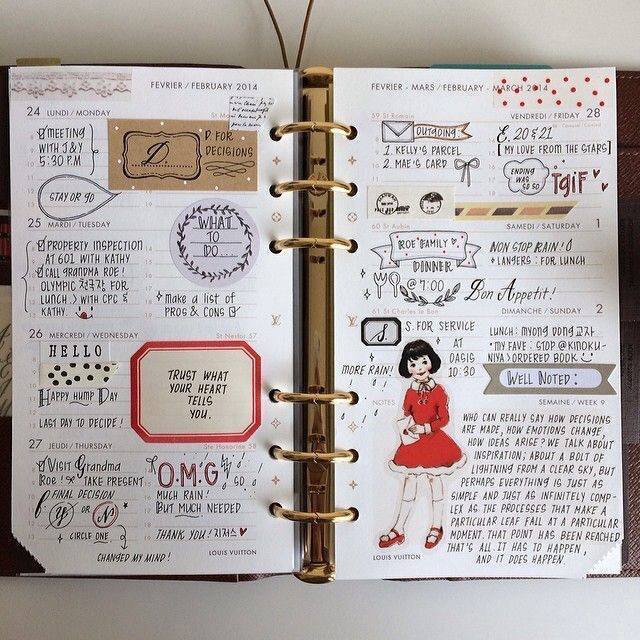 FEVRIER / FEBRUARY 2014
24 LUNDI / MONDAY
MEETING
WITH J&Y
5:30 P.M
D.
D. FOR
DECISIONS
STAY OR GO
25 MARDI / TUESDAY
PROPERTY INSPECTION
AT 601 WITH KATHY
CALL GRANDMA ROE!
OLYMPIC 천국감 FOR
LUNCH :) WITH CPC &
KATHY.
WHAT
TO
DO....
make a list of
PROS & CONS
26 MERCREDI / WEDNESDAY
St Nestor 57
HELLO
HAPPY HUMP DAY
LAST DAY TO DECIDE!
TRUST WHAT
YOUR HEART
TELLS
YOU.
27 JEUDI / THURSDAY
Ste Honorine 58
VISIT GRANDMA
ROE! TAKE PRESENT
FINAL DECISION
Y OR N
CIRCLE ONE
CHANGED MY MIND!
O.M.G
SO
MUCH RAIN!
BUT MUCH NEEDED
THANK YOU! 지저스
LOUIS VUITTON
FEVRIER - MARS / FEBRUARY - MARCH 2014
59 St Romain
VENDREDI / FRIDAY 28
OUTGOING
1. KELLY'S PARCEL
2. MAE'S CARD
E. 20 & 21
[MY LOVE FROM THE STARS]
ENDING
WAS
SO SO
TGIF
60 St Aubin
SAMEDI / SATURDAY 1
ROE FAMILY
DINNER
@ 7:00
NON STOP RAIN!
LANGERS: FOR LUNCH
Bon Appetit!
61 St Charles le Bon
DIMANCHE / SUNDAY 2
S.
S. FOR SERVICE
AT
OASIS
10:30
MORE RAIN!
LUNCH: MYONG DONG 교자
MY FAVE: STOP @ KINOKU-
NIYA > ORDERED BOOK
WELL NOTED:
NOTES
SEMAINE / WEEK 9
WHO CAN REALLY SAY HOW DECISIONS
ARE MADE, HOW EMOTIONS CHANGE,
HOW IDEAS ARISE? WE TALK ABOUT
INSPIRATION; ABOUT A BOLT OF
LIGHTNING FROM A CLEAR SKY, BUT
PERHAPS EVERYTHING IS JUST AS
SIMPLE AND JUST AS INFINITELY COMP-
LEX AS THE PROCESSES THAT MAKE A
PARTICULAR LEAF FALL AT A PARTICULAR
MOMENT. THAT POINT HAS BEEN REACHED
THAT'S ALL. IT HAS TO HAPPEN,
AND IT DOES HAPPEN.
LOUIS VUITTON